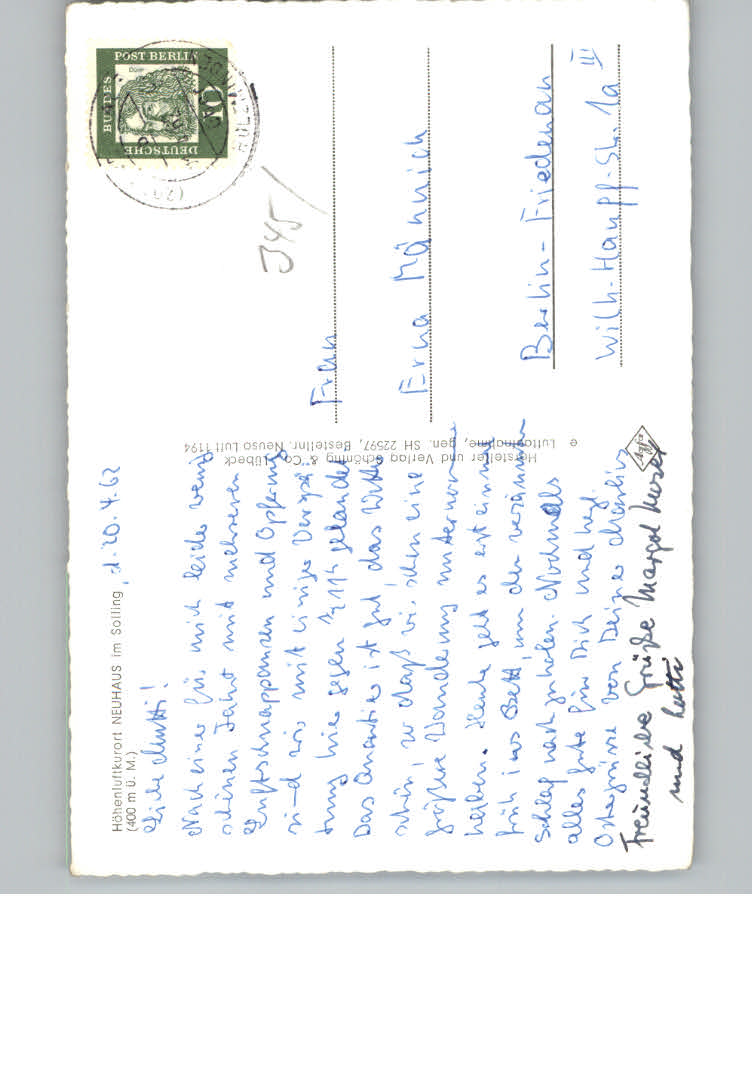 Höhenluftkurort NEUHAUS im Solling, d. 20.4.62
(400 m ü. M.)
Liebe Mutti!
Nach einer für mich leider wenig
schönen Fahrt mit mehreren
Luftschnapppausen und Opferung
sind wir mit einiger Verspä-
tung hier gegen 1/2 11h gelandet
Das Quartier ist gut, das Wetter
schön, so daß wir schon eine
größere Wanderung unternommen
haben. Heute geht es erst einmal
früh ins Bett, um den versäumten
Schlaf nachzuholen. Nochmals
alles Gute für Dich und herzl.
Ostergrüsse von Deiner
Freundliche Grüße Margot Moser
und Lutti
Hersteller und Verlag Schöning & Co., Lübeck
Luftaufnahme, gen. SH 22597, Bestellnr. Neuso Luft 1194
e
Agfa
DEUTSCHE
BUNDES
POST BERLIN
10
DÜRER
HOLZ
345/
Frau
Erna Männich
Berlin-Friedenau
Wilh.-Hauff-Str. 1a III